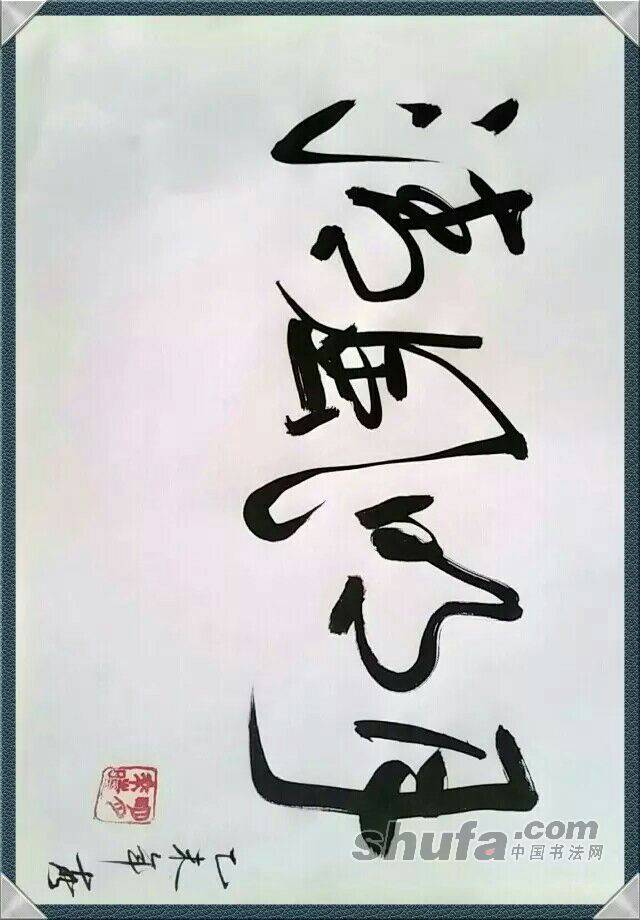 清風明月
乙未年
shufa.com
中国书法网